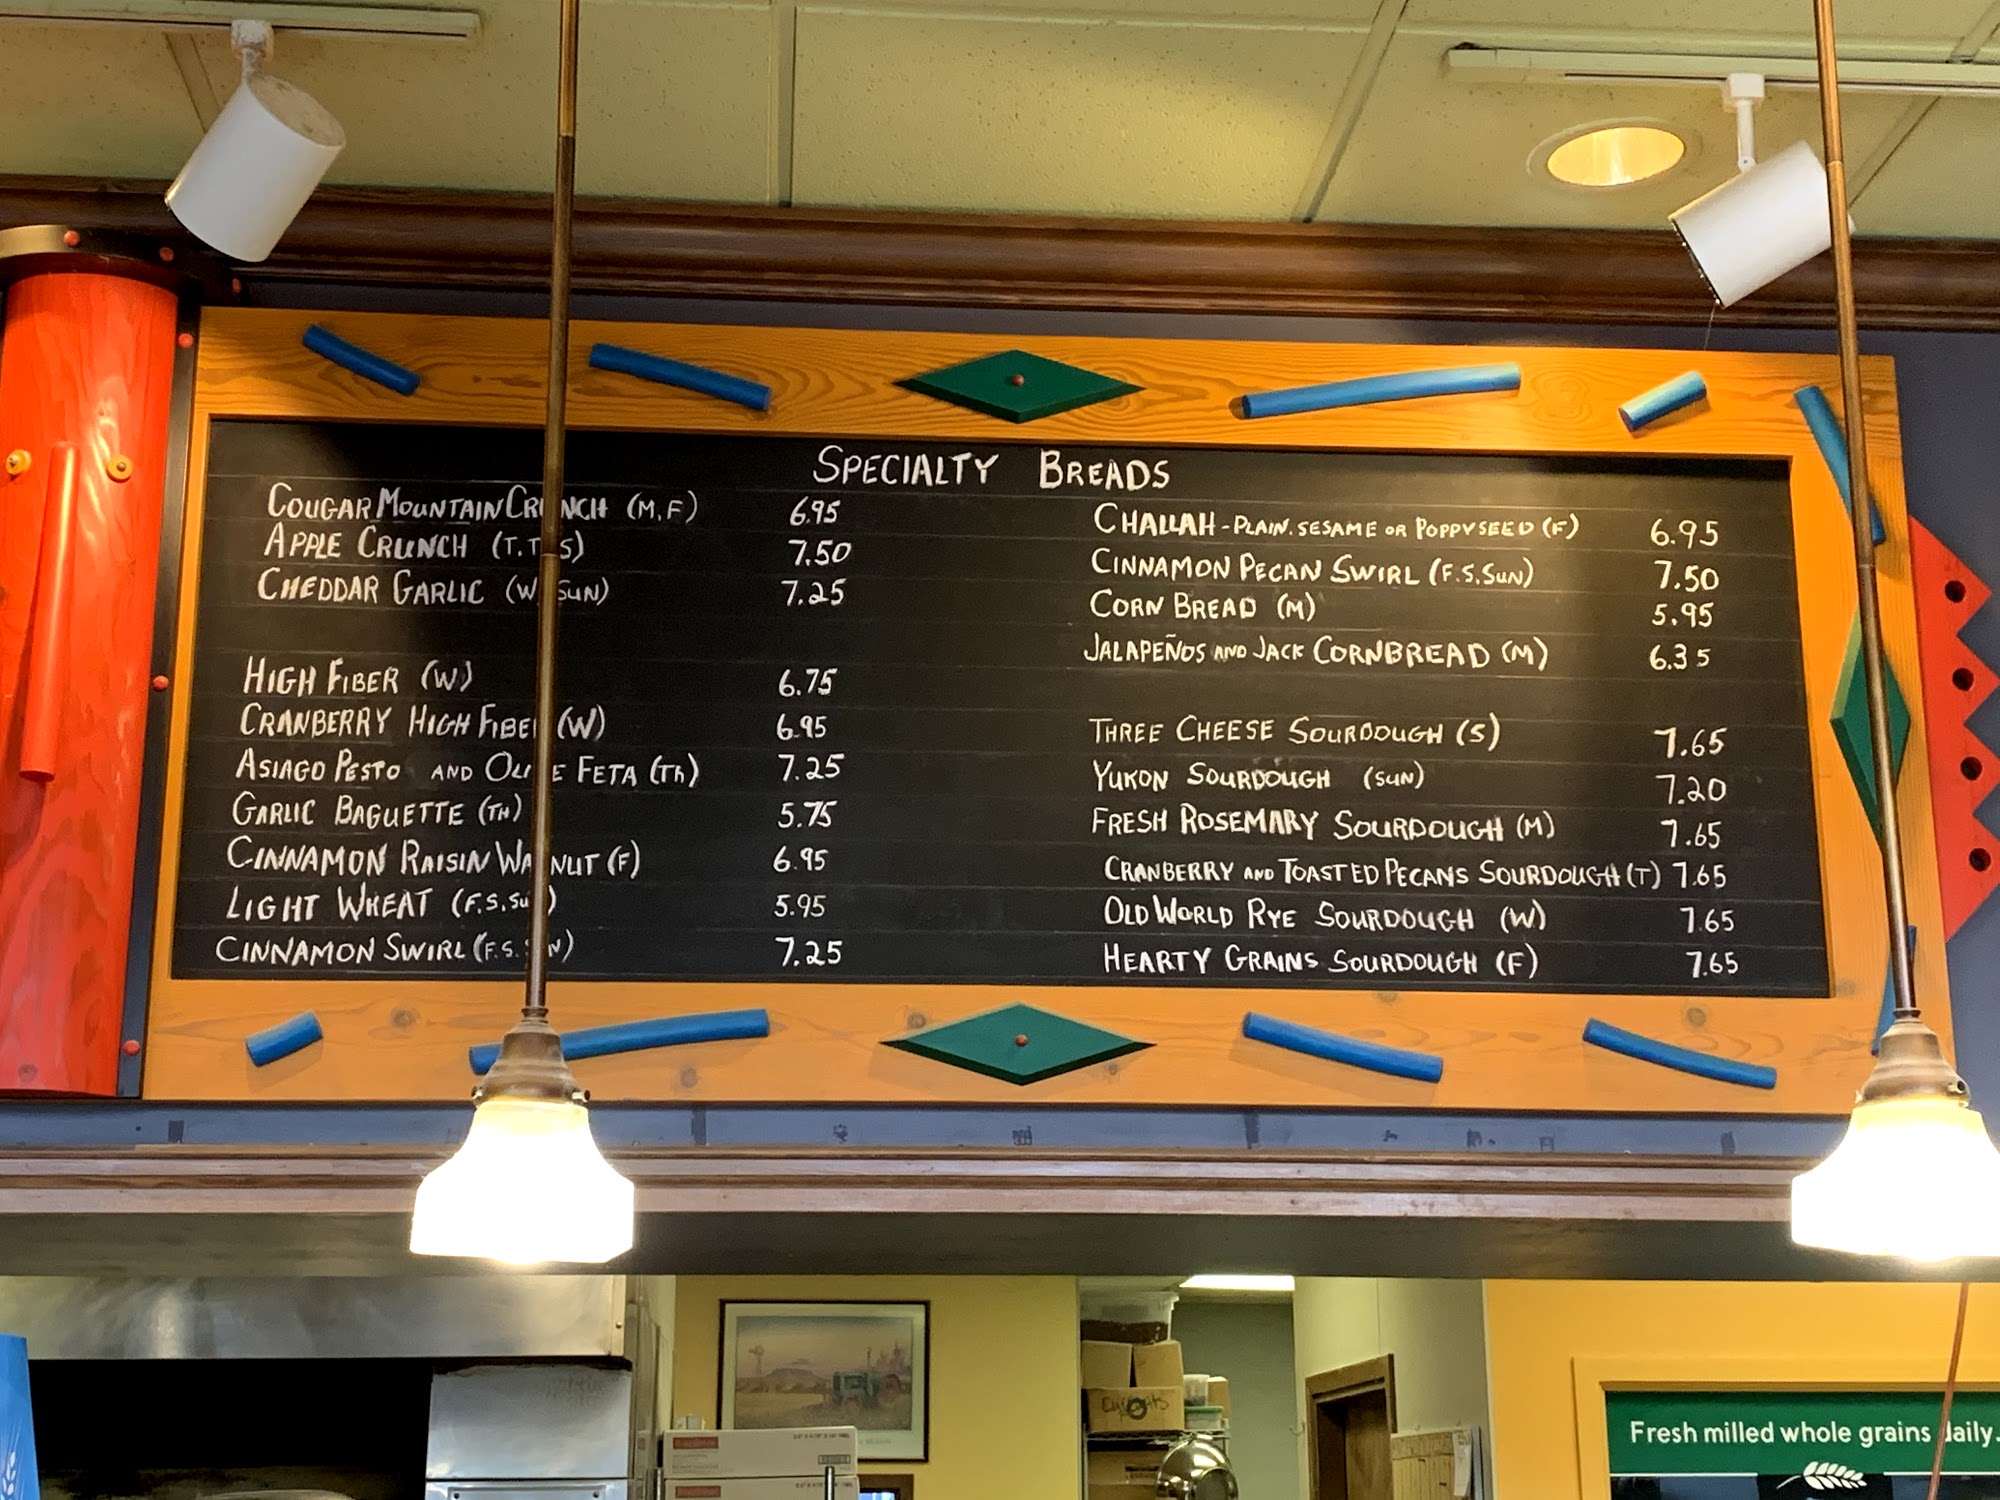 SPECIALTY BREADS
COUGAR MOUNTAIN CRUNCH (M, F) 6.95
APPLE CRUNCH (T, T S) 7.50
CHEDDAR GARLIC (W, SUN) 7.25
HIGH FIBER (W) 6.75
CRANBERRY HIGH FIBER (W) 6.95
ASIAGO PESTO AND OLIVE FETA (Th) 7.25
GARLIC BAGUETTE (TH) 5.75
CINNAMON RAISIN WALNUT (F) 6.95
LIGHT WHEAT (F.S.SUN) 5.95
CINNAMON SWIRL (F.S.SUN) 7.25
CHALLAH - PLAIN, SESAME OR POPPYSEED (F) 6.95
CINNAMON PECAN SWIRL (F.S.SUN) 7.50
CORN BREAD (M) 5.95
JALAPEÑOS AND JACK CORNBREAD (M) 6.35
THREE CHEESE SOURDOUGH (S) 7.65
YUKON SOURDOUGH (SUN) 7.20
FRESH ROSEMARY SOURDOUGH (M) 7.65
CRANBERRY AND TOASTED PECANS SOURDOUGH (T) 7.65
OLD WORLD RYE SOURDOUGH (W) 7.65
HEARTY GRAINS SOURDOUGH (F) 7.65
Fresh milled whole grains daily.